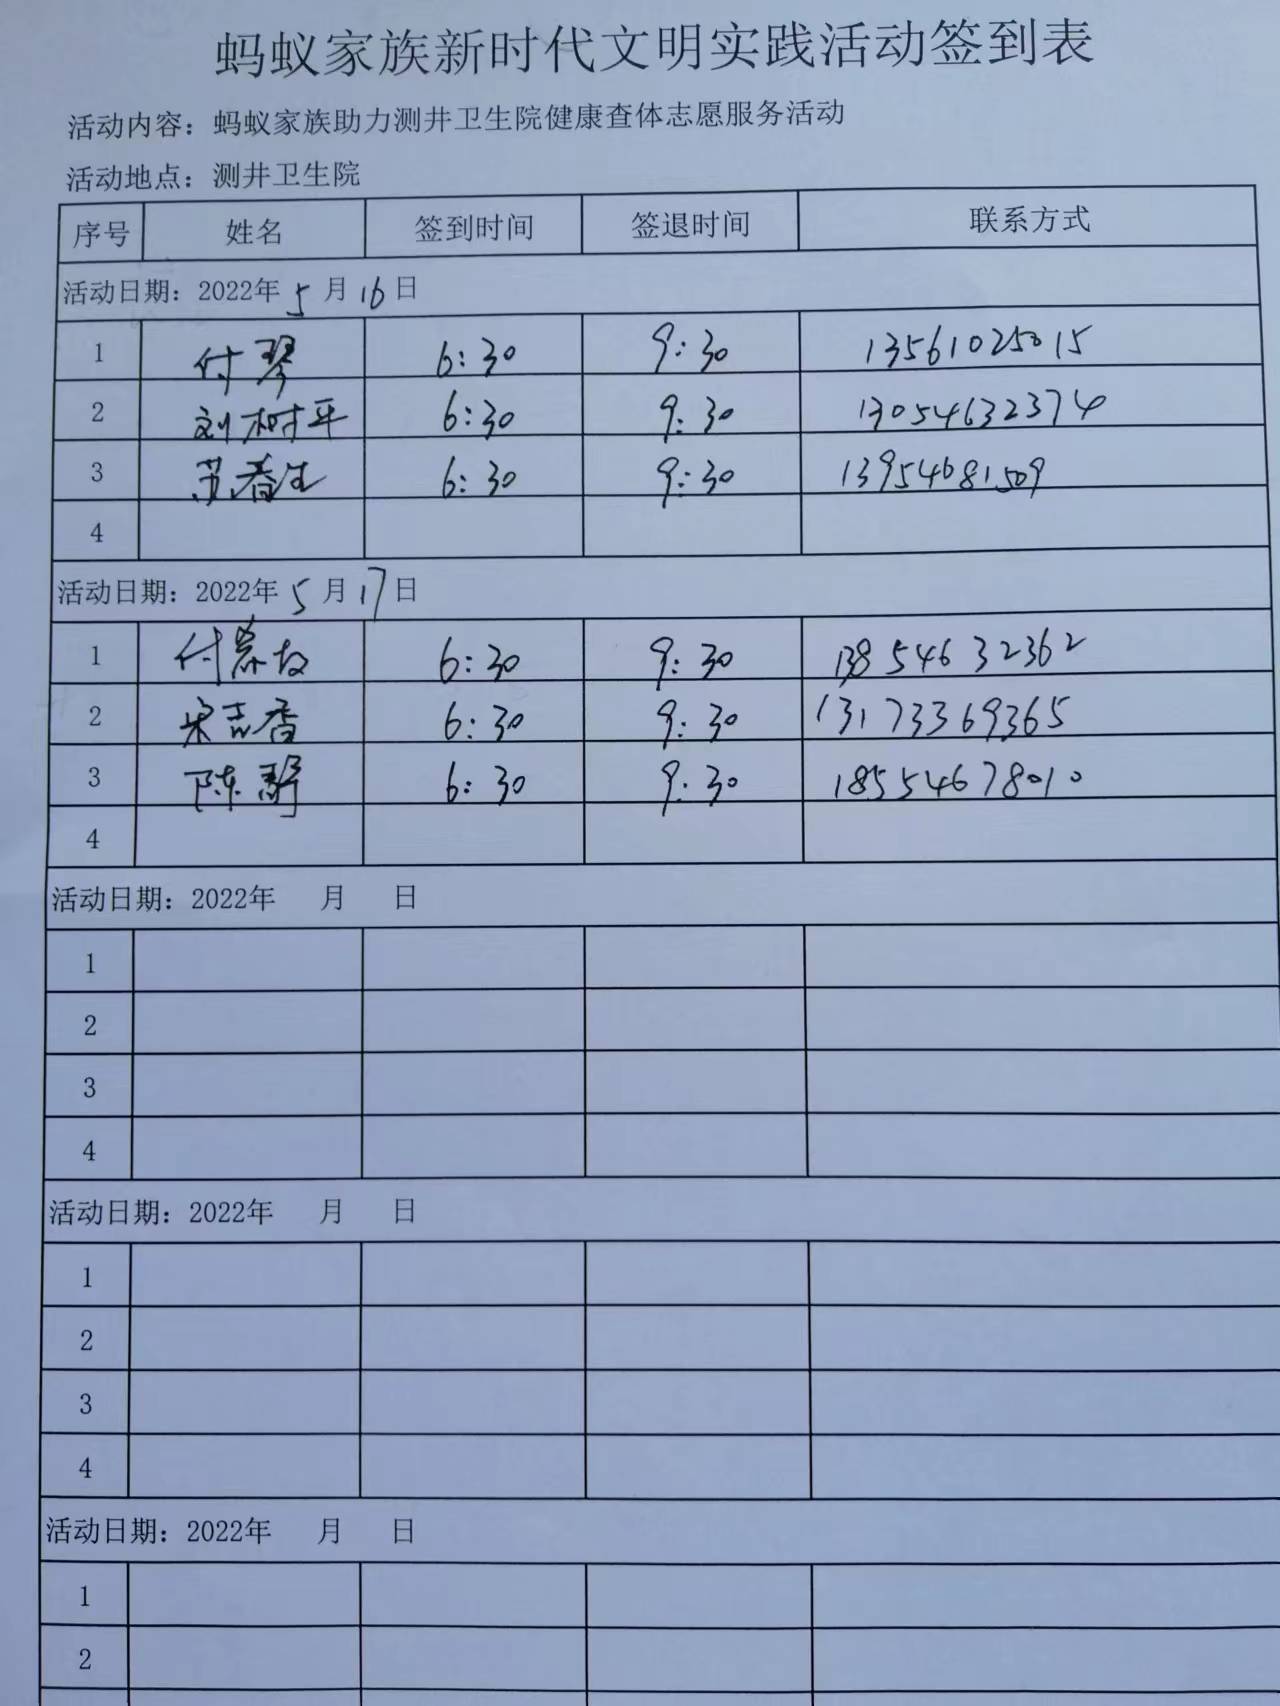 蚂蚁家族新时代文明实践活动签到表
活动内容：蚂蚁家族助力测井卫生院健康查体志愿服务活动
活动地点：测井卫生院
序号 姓名 签到时间 签退时间 联系方式
活动日期：2022年5月16日
1 付琴 6:30 9:30 13561025015
2 刘树平 6:30 9:30 13054632374
3 苏春生 6:30 9:30 13954681509
4
活动日期：2022年5月17日
1 付 6:30 9:30 13854632362
2 宋志香 6:30 9:30 13173369365
3 陈 6:30 9:30 18554678010
4
活动日期：2022年 月 日
1
2
3
4
活动日期：2022年 月 日
1
2
3
4
活动日期：2022年 月 日
1
2